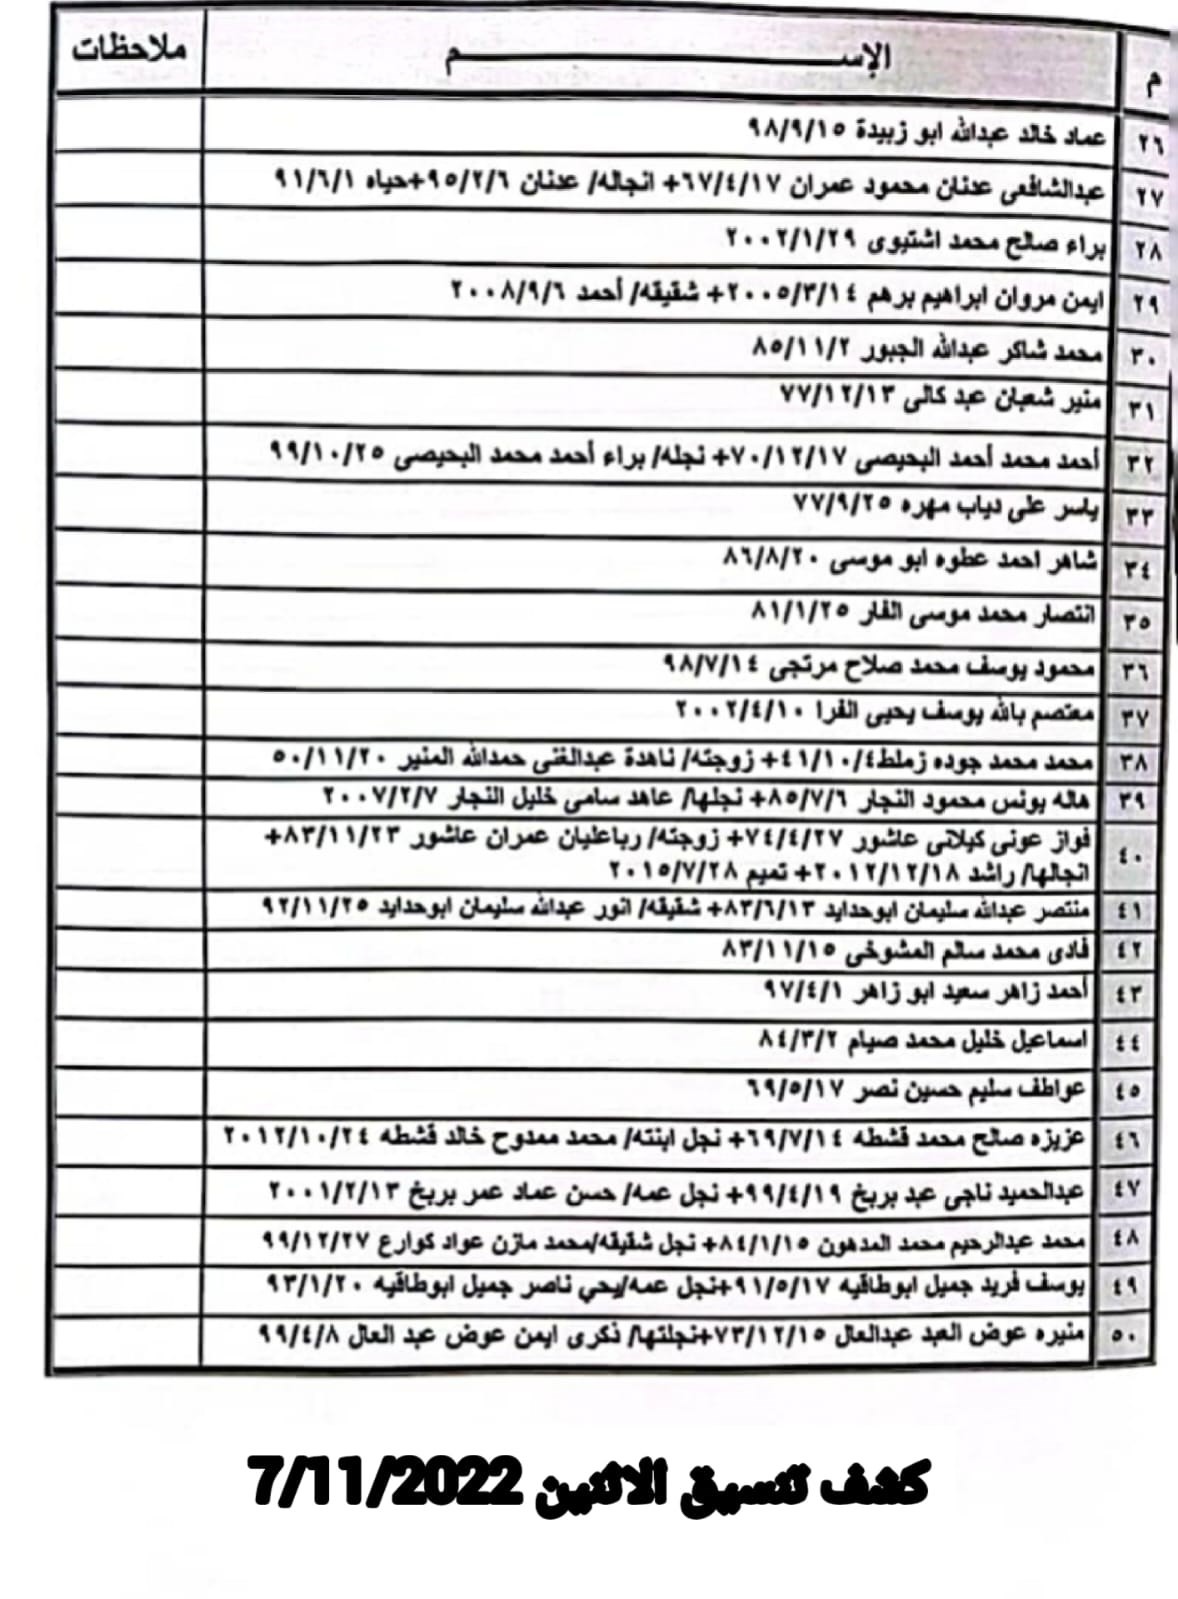 م الإســـــــــــــم ملاحظات
٢٦ عماد خالد عبدالله ابو زبيدة ٩٨/٩/١٥
٢٧ عبدالشافعى عدنان محمود عمران ٦٧/٤/١٧+ انجاله/ عدنان ٩٥/٢/٦+حياه ٩١/٦/١
٢٨ براء صالح محمد اشتيوى ٢٠٠٢/١/٢٩
٢٩ ايمن مروان ابراهيم برهم ٢٠٠٥/٣/١٤+ شقيقه/ أحمد ٢٠٠٨/٩/٦
٣٠ محمد شاكر عبدالله الجبور ٨٥/١١/٢
٣١ منير شعبان عبد كالى ٧٧/١٢/١٣
٣٢ أحمد محمد أحمد البحيصى ٧٠/١٢/١٧+ نجله/ براء أحمد محمد البحيصى ٩٩/١٠/٢٥
٣٣ ياسر على دياب مهره ٧٧/٩/٢٥
٣٤ شاهر احمد عطوه ابو موسى ٨٦/٨/٢٠
٣٥ انتصار محمد موسى الفار ٨١/١/٢٥
٣٦ محمود يوسف محمد صلاح مرتجى ٩٨/٧/١٤
٣٧ معتصم بالله يوسف يحيى الفرا ٢٠٠٢/٤/١٠
٣٨ محمد محمد جوده زملط٤١/١٠/٤+ زوجته/ ناهدة عبدالغنى حمدالله المنير ٥٠/١١/٢٠
٣٩ هاله يونس محمود النجار ٨٥/٧/٦+ نجلها/ عاهد سامى خليل النجار ٢٠٠٧/٢/٧
٤٠ فواز عونى كيلانى عاشور ٧٤/٤/٢٧+ زوجته/ رباعليان عمران عاشور ٨٣/١١/٢٣+
انجالها/ راشد ٢٠١٢/١٢/١٨+ تميم ٢٠١٥/٧/٢٨
٤١ منتصر عبدالله سليمان ابوحدايد ٨٣/٦/١٣+ شقيقه/ انور عبدالله سليمان ابوحدايد ٩٢/١١/٢٥
٤٢ فادى محمد سالم المشوخى ٨٣/١١/١٥
٤٣ أحمد زاهر سعيد ابو زاهر ٩٧/٤/١
٤٤ اسماعيل خليل محمد صيام ٨٤/٣/٢
٤٥ عواطف سليم حسين نصر ٦٩/٥/١٧
٤٦ عزيزه صالح محمد قشطه ٦٩/٧/١٤+ نجل ابنته/ محمد ممدوح خالد قشطه ٢٠١٢/١٠/٢٤
٤٧ عبدالحميد ناجى عبد بربخ ٩٩/٤/١٩+ نجل عمه/ حسن عماد عمر بربخ ٢٠٠١/٢/١٣
٤٨ محمد عبدالرحيم محمد المدهون ٨٤/١/١٥+ نجل شقيقه/محمد مازن عواد كوارع ٩٩/١٢/٢٧
٤٩ يوسف فريد جميل ابوطاقيه ٩١/٥/١٧+نجل عمه/يحي ناصر جميل ابوطاقيه ٩٣/١/٢٠
٥٠ منيره عوض العبد عبدالعال ٧٣/١٢/١٥+نجلتها/ ذكرى ايمن عوض عبد العال ٩٩/٤/٨
كشف تنسيق الاثنين 7/11/2022